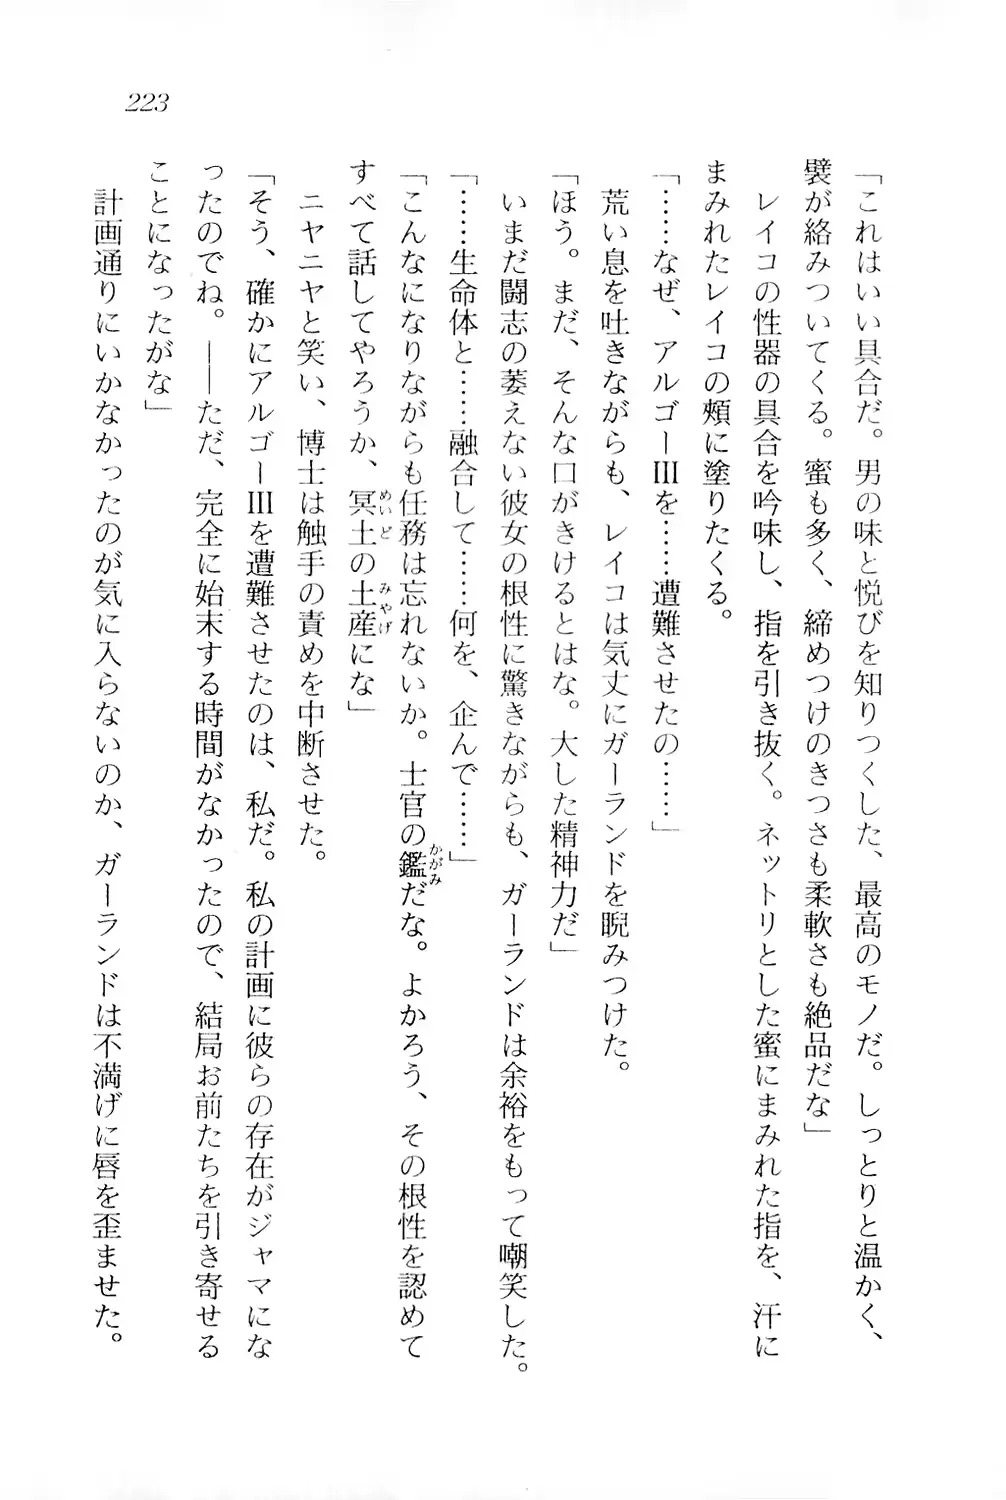 223
「これはいい具合だ。男の味と悦びを知りつくした、最高のモノだ。しっとりと温かく、
襞が絡みついてくる。蜜も多く、締めつけのきつさも柔軟さも絶品だな」
レイコの性器の具合を吟味し、指を引き抜く。ネットリとした蜜にまみれた指を、汗に
まみれたレイコの頰に塗りたくる。
「……なぜ、アルゴーⅢを……遭難させたの……」
荒い息を吐きながらも、レイコは気丈にガーランドを睨みつけた。
「ほう。まだ、そんな口がきけるとはな。大した精神力だ」
いまだ闘志の萎えない彼女の根性に驚きながらも、ガーランドは余裕をもって嘲笑した。
「……生命体と……融合して……何を、企んで……」
かがみ
「こんなになりながらも任務は忘れないか。士官の鑑だな。よかろう、その根性を認めて
めいど みやげ
すべて話してやろうか、冥土の土産にな」
ニヤニヤと笑い、博士は触手の責めを中断させた。
「そう、確かにアルゴーⅢを遭難させたのは、私だ。私の計画に彼らの存在がジャマにな
ったのでね。――ただ、完全に始末する時間がなかったので、結局お前たちを引き寄せる
ことになったがな」
計画通りにいかなかったのが気に入らないのか、ガーランドは不満げに唇を歪ませた。